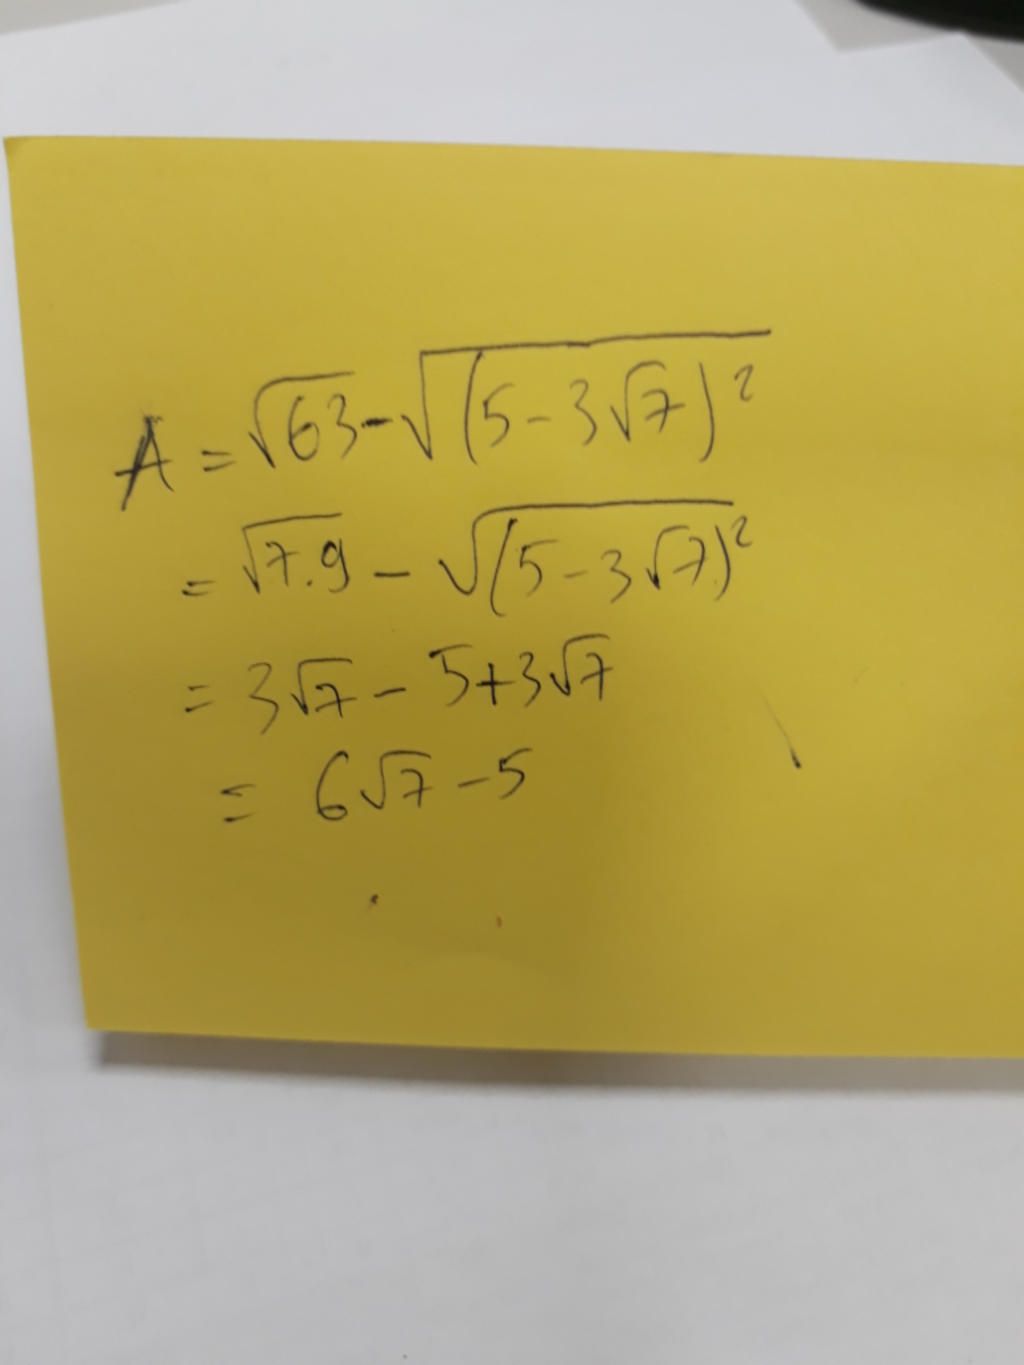 A = √63 - √(5 - 3√7)²
= √7.9 - √(5 - 3√7)²
= 3√7 - 5 + 3√7
= 6√7 - 5